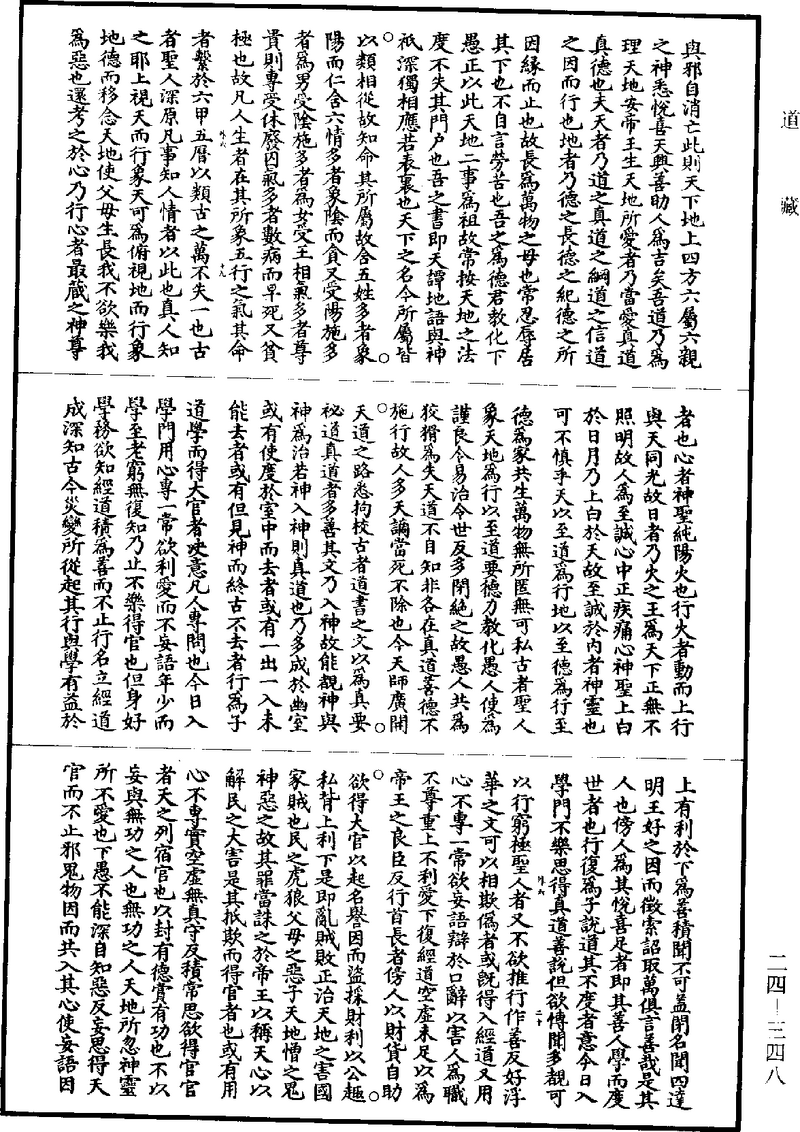 道藏
與邪自消亡此則天下地上四方六屬六親
之神悉悅喜天與善助人為吉矣吾道乃為
理天地安帝王生天地所愛者乃當愛真道
真德也夫天者乃道之真道之綱道之信道
之因而行也地者乃德之長德之紀德之所
因緣而止也故長為萬物之母也常忍辱居
其下也不自言勞苦也吾之為德君教化下
愚正以此天地二事為祖故常按天地之法
度不失其門戶也吾之書即天譚地語與神
祇深獨相應若表裏也天下之名命所屬皆
以類相從故知命其所屬故含五姓多者象
陽而仁含六情多者象陰而貪又受陽施多
者為男受陰施多者為女受王相氣多者尊
貴則尊受休廢囚氣多者數病而早死又貧
極也故凡人生者在其所象五行之氣其命
者繫於六甲五曆以類古之萬不失一也古
者聖人深原凡事知人情者以此也真人知
之耶上視天而行象天可為俯視地而行象
地德而移念天地使父母生長我不欲樂我
為惡也還考之於心乃行心者最藏之神尊
者也心者神聖純陽火也行火者動而上行
與天同光故日者乃火之王為天下正無不
照明故人為至誠心中正疾痛心神聖上白
於日月乃上白於天故至誠於內者神靈也
可不慎乎天以至道為行地以至德為行至
德為家共生萬物無所匿無可私古者聖人
象天地為行以至道要德力教化愚人使為
謹良令易治今世反多閉絕之故愚人共為
狡猾為失天道不自知非各在真道善德不
施行故人多天謫當死不除也今天師廣開
天道之路悉拘校古者道書之文以為真要
祕道真道者多善其文乃入神故能覩神與
神為治若神入神則真道也乃多成於幽室
或有使度於室中而去者或有一出一入未
能去者或有但見神而終古不去者行為子
道學而得大官者決意凡人專問也今日入
學門用心專一常欲利愛而不妄語年少而
學至老窮無復知乃止不樂得官也但身好
學務欲知經道積為善而不止行名立經道
成深知古今災變所從起其行與學有益於
上有利於下為善積聞不可蓋閉名聞四達
明王好之因而徵索詔取萬俱言善哉是其
人也傍人為其悅喜足者即其善人學而度
世者也行復為子說道其不度者意今日入
學門不樂思得真道善說但欲博聞多覩可
以行窮極聖人者又不欲推行作善反好浮
華之文可以相欺偽者或旣得入經道又用
心不專一常欲妄語辯於口辭以害人為職
不尊重上不利愛下復經道空虛未足以為
帝王之良臣反行首長者傍人以財貨自助
欲得大官以起名譽因而盜採財利以公趣
私背上利下是即亂賊敗正治天地之害國
家賊也民之虎狼父母之惡子天地憎之鬼
神惡之故其罪當誅之於帝王以稱天心以
解民之大害是其抵欺而得官者也或有用
心不專實空虛無真守反積常思欲得官官
者天之列宿官也以封有德賞有功也不以
妄與無功之人也無功之人天地所忽神靈
所不愛也下愚不能深自知惡反妄思得天
官而不止邪鬼物因而共入其心使妄語因
二四—三四八